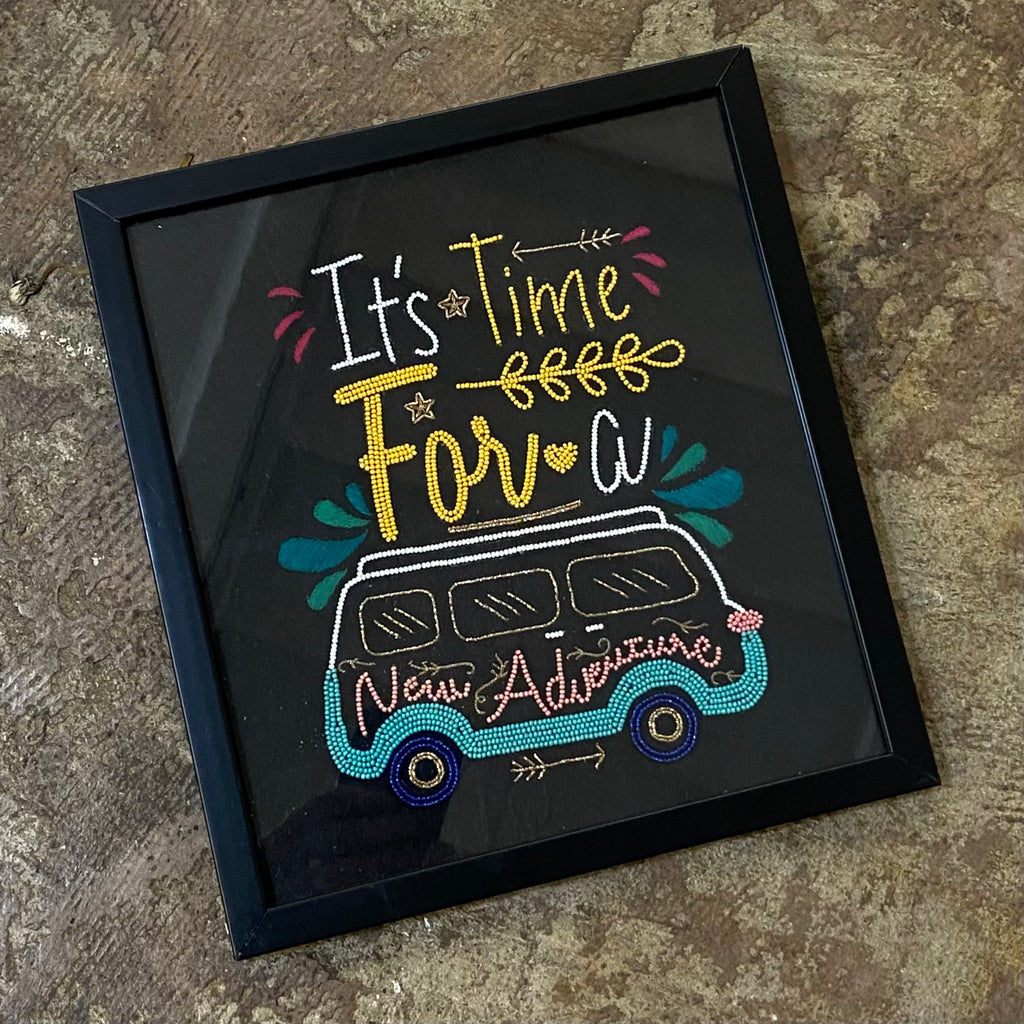 It's Time
For a
New Adventure